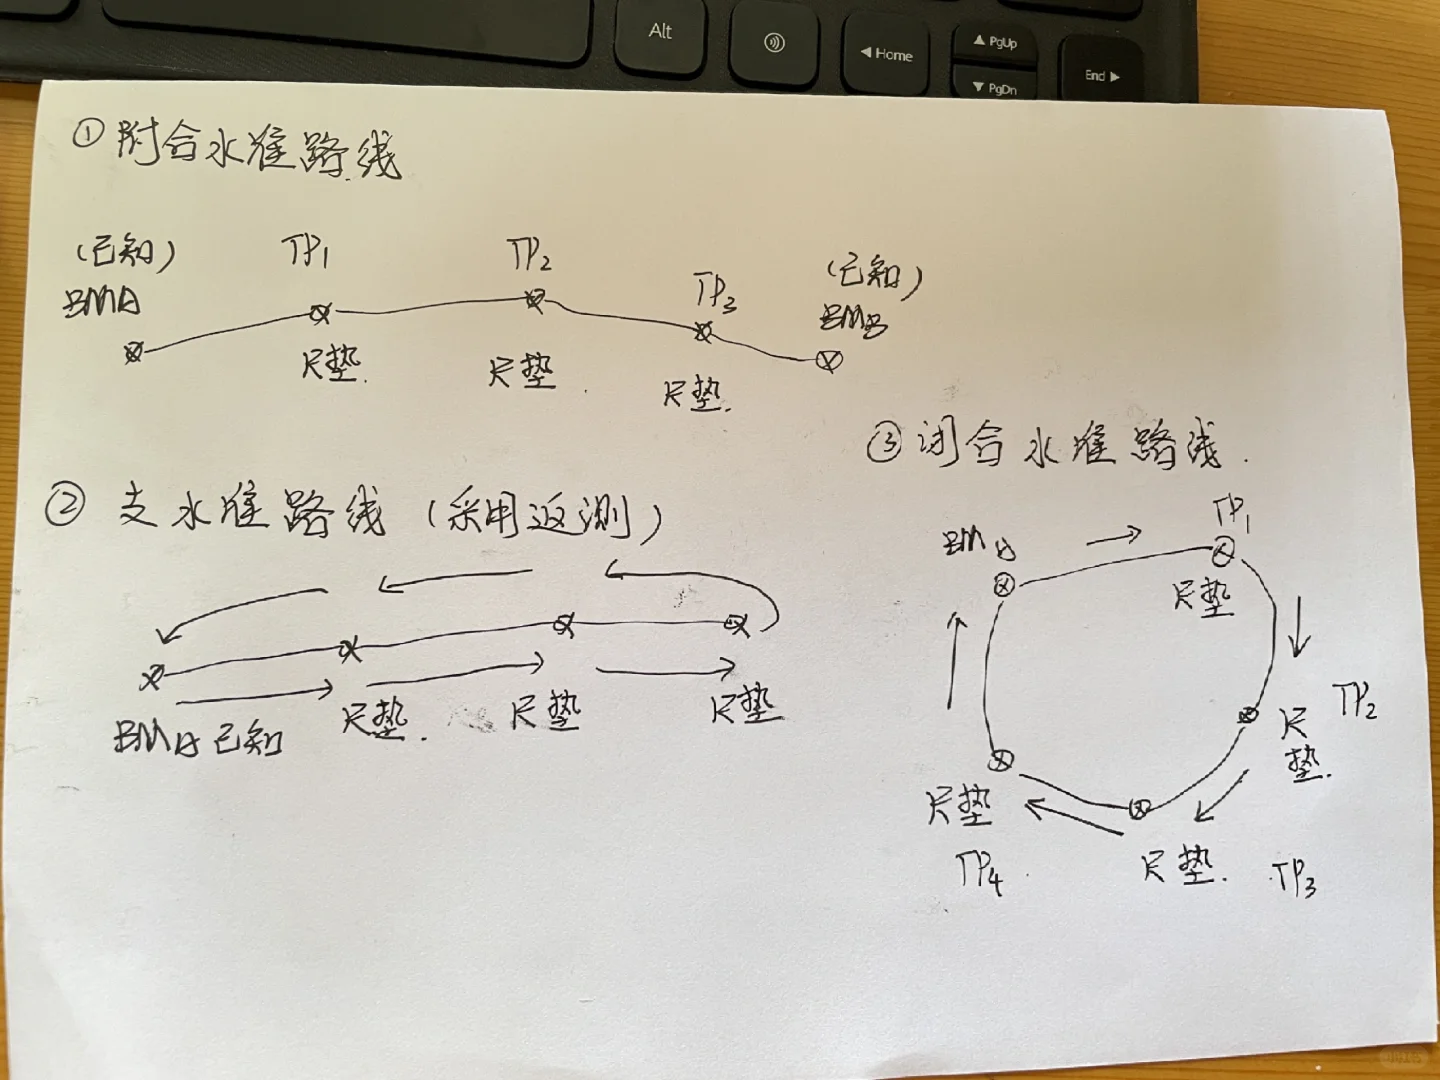 Alt
◀ Home
▲ PgUp
▼ PgDn
End ▶
① 附合水准路线
(已知)
BMA
TP1
TP2
TP3
(已知)
BMB
尺垫.
尺垫.
尺垫.
② 支水准路线 (采用返测)
BMA 已知
尺垫.
尺垫
尺垫
③ 闭合水准路线.
BMA
TP1
尺垫
尺垫.
TP2
尺垫.
TP3
尺垫
TP4